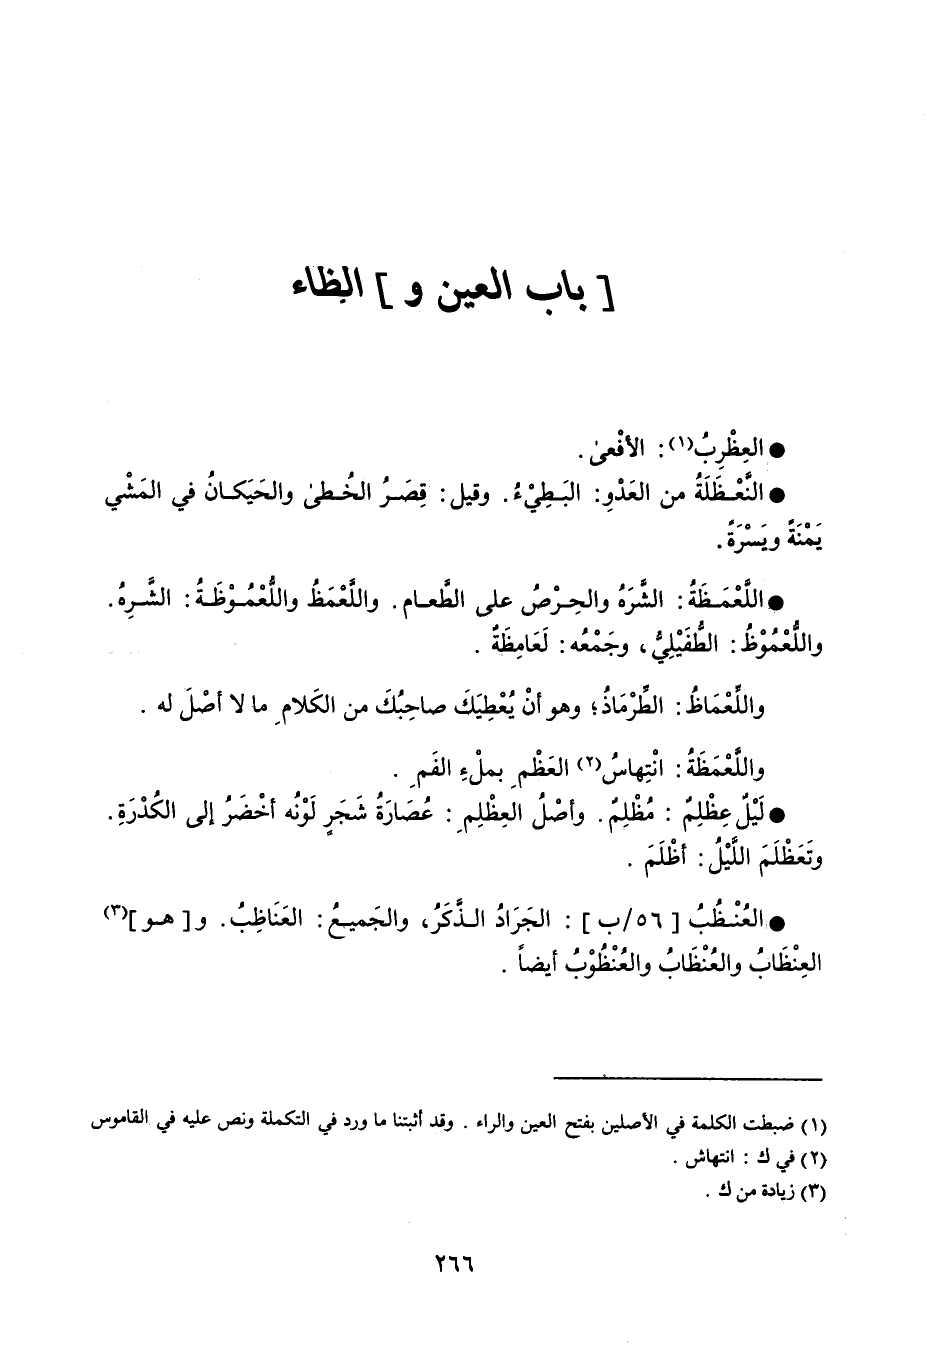 [ باب العين و ] الظاء
● العِظْرِبُ(١): الأفْعىٰ.
● النَّعْظَلَةُ من العَدْوِ: البَطِيْءُ. وقيل: قِصَرُ الخُطىٰ والحَيَكانُ في المَشْي
يَمْنَةً ويَسْرَةً.
● اللَّعْمَظَةُ: الشَّرَهُ والحِرْصُ على الطَّعام. واللَّعْمَظُ واللُّعْمُوْظَةُ: الشَّرِهُ.
واللُّعْمُوْظُ: الطُّفَيْلِيُّ، وجَمْعُه: لَعَامِظَةٌ.
واللِّعْمَاظُ: الطِّرْمَاذُ؛ وهو أنْ يُعْطِيَكَ صاحِبُكَ من الكَلامِ ما لا أصْلَ له.
واللَّعْمَظَةُ: انْتِهاسُ(٢) العَظْمِ بملْءِ الفَمِ.
● لَيْلٌ عِظْلِمٌ: مُظْلِمٌ. وأصْلُ العِظْلِمِ: عُصَارَةُ شَجَرٍ لَوْنُه أخْضَرُ إلى الكُدْرَةِ.
وتَعَظْلَمَ اللَّيْلُ: أظْلَمَ.
● العُنْظُبُ [ ٥٦/ب ]: الجَرَادُ الذَّكَرُ، والجَميعُ: العَنَاظِبُ. و[ هو ](٣)
العِنْظَابُ والعُنْظَابُ والعُنْظُوْبُ أيضاً.
(١) ضبطت الكلمة في الأصلين بفتح العين والراء. وقد أثبتنا ما ورد في التكملة ونص عليه في القاموس
(٢) في ك: انتهاش.
(٣) زيادة من ك.
٢٦٦